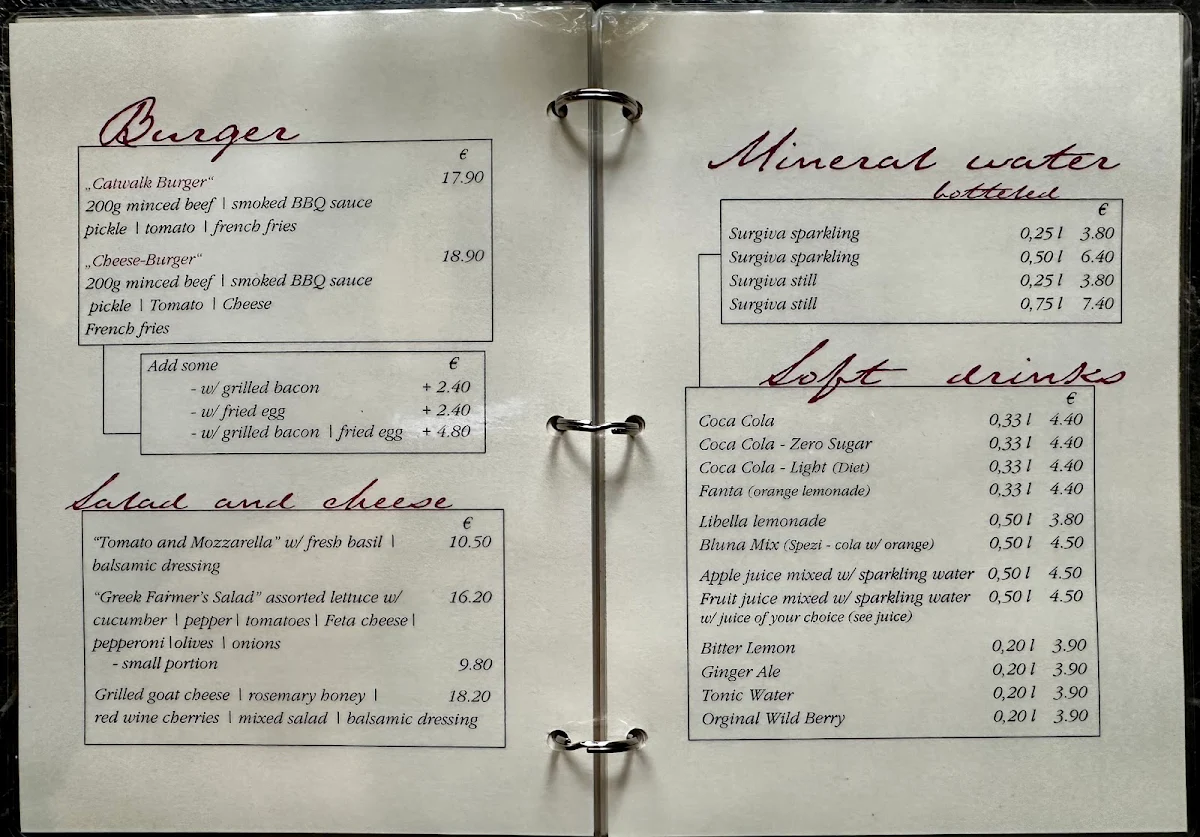 Burger
€
„Catwalk Burger“ 17.90
200g minced beef | smoked BBQ sauce
pickle | tomato | french fries
„Cheese-Burger“ 18.90
200g minced beef | smoked BBQ sauce
pickle | Tomato | Cheese
French fries
Add some €
- w/ grilled bacon + 2.40
- w/ fried egg + 2.40
- w/ grilled bacon | fried egg + 4.80
Salad and cheese
€
“Tomato and Mozzarella” w/ fresh basil | 10.50
balsamic dressing
“Greek Farmer's Salad” assorted lettuce w/ 16.20
cucumber | pepper | tomatoes | Feta cheese |
pepperoni | olives | onions
- small portion 9.80
Grilled goat cheese | rosemary honey | 18.20
red wine cherries | mixed salad | balsamic dressing
Mineral water
bottered
€
Surgiva sparkling 0,25 l 3.80
Surgiva sparkling 0,50 l 6.40
Surgiva still 0,25 l 3.80
Surgiva still 0,75 l 7.40
Soft drinks
€
Coca Cola 0,33 l 4.40
Coca Cola - Zero Sugar 0,33 l 4.40
Coca Cola - Light (Diet) 0,33 l 4.40
Fanta (orange lemonade) 0,33 l 4.40
Libella lemonade 0,50 l 3.80
Bluna Mix (Spezi - cola w/ orange) 0,50 l 4.50
Apple juice mixed w/ sparkling water 0,50 l 4.50
Fruit juice mixed w/ sparkling water 0,50 l 4.50
w/ juice of your choice (see juice)
Bitter Lemon 0,20 l 3.90
Ginger Ale 0,20 l 3.90
Tonic Water 0,20 l 3.90
Orginal Wild Berry 0,20 l 3.90